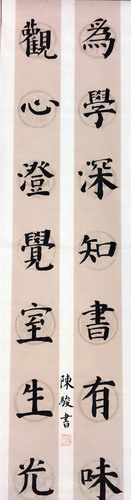 為學深知書有味
觀心澄覺室生光
陳駿書